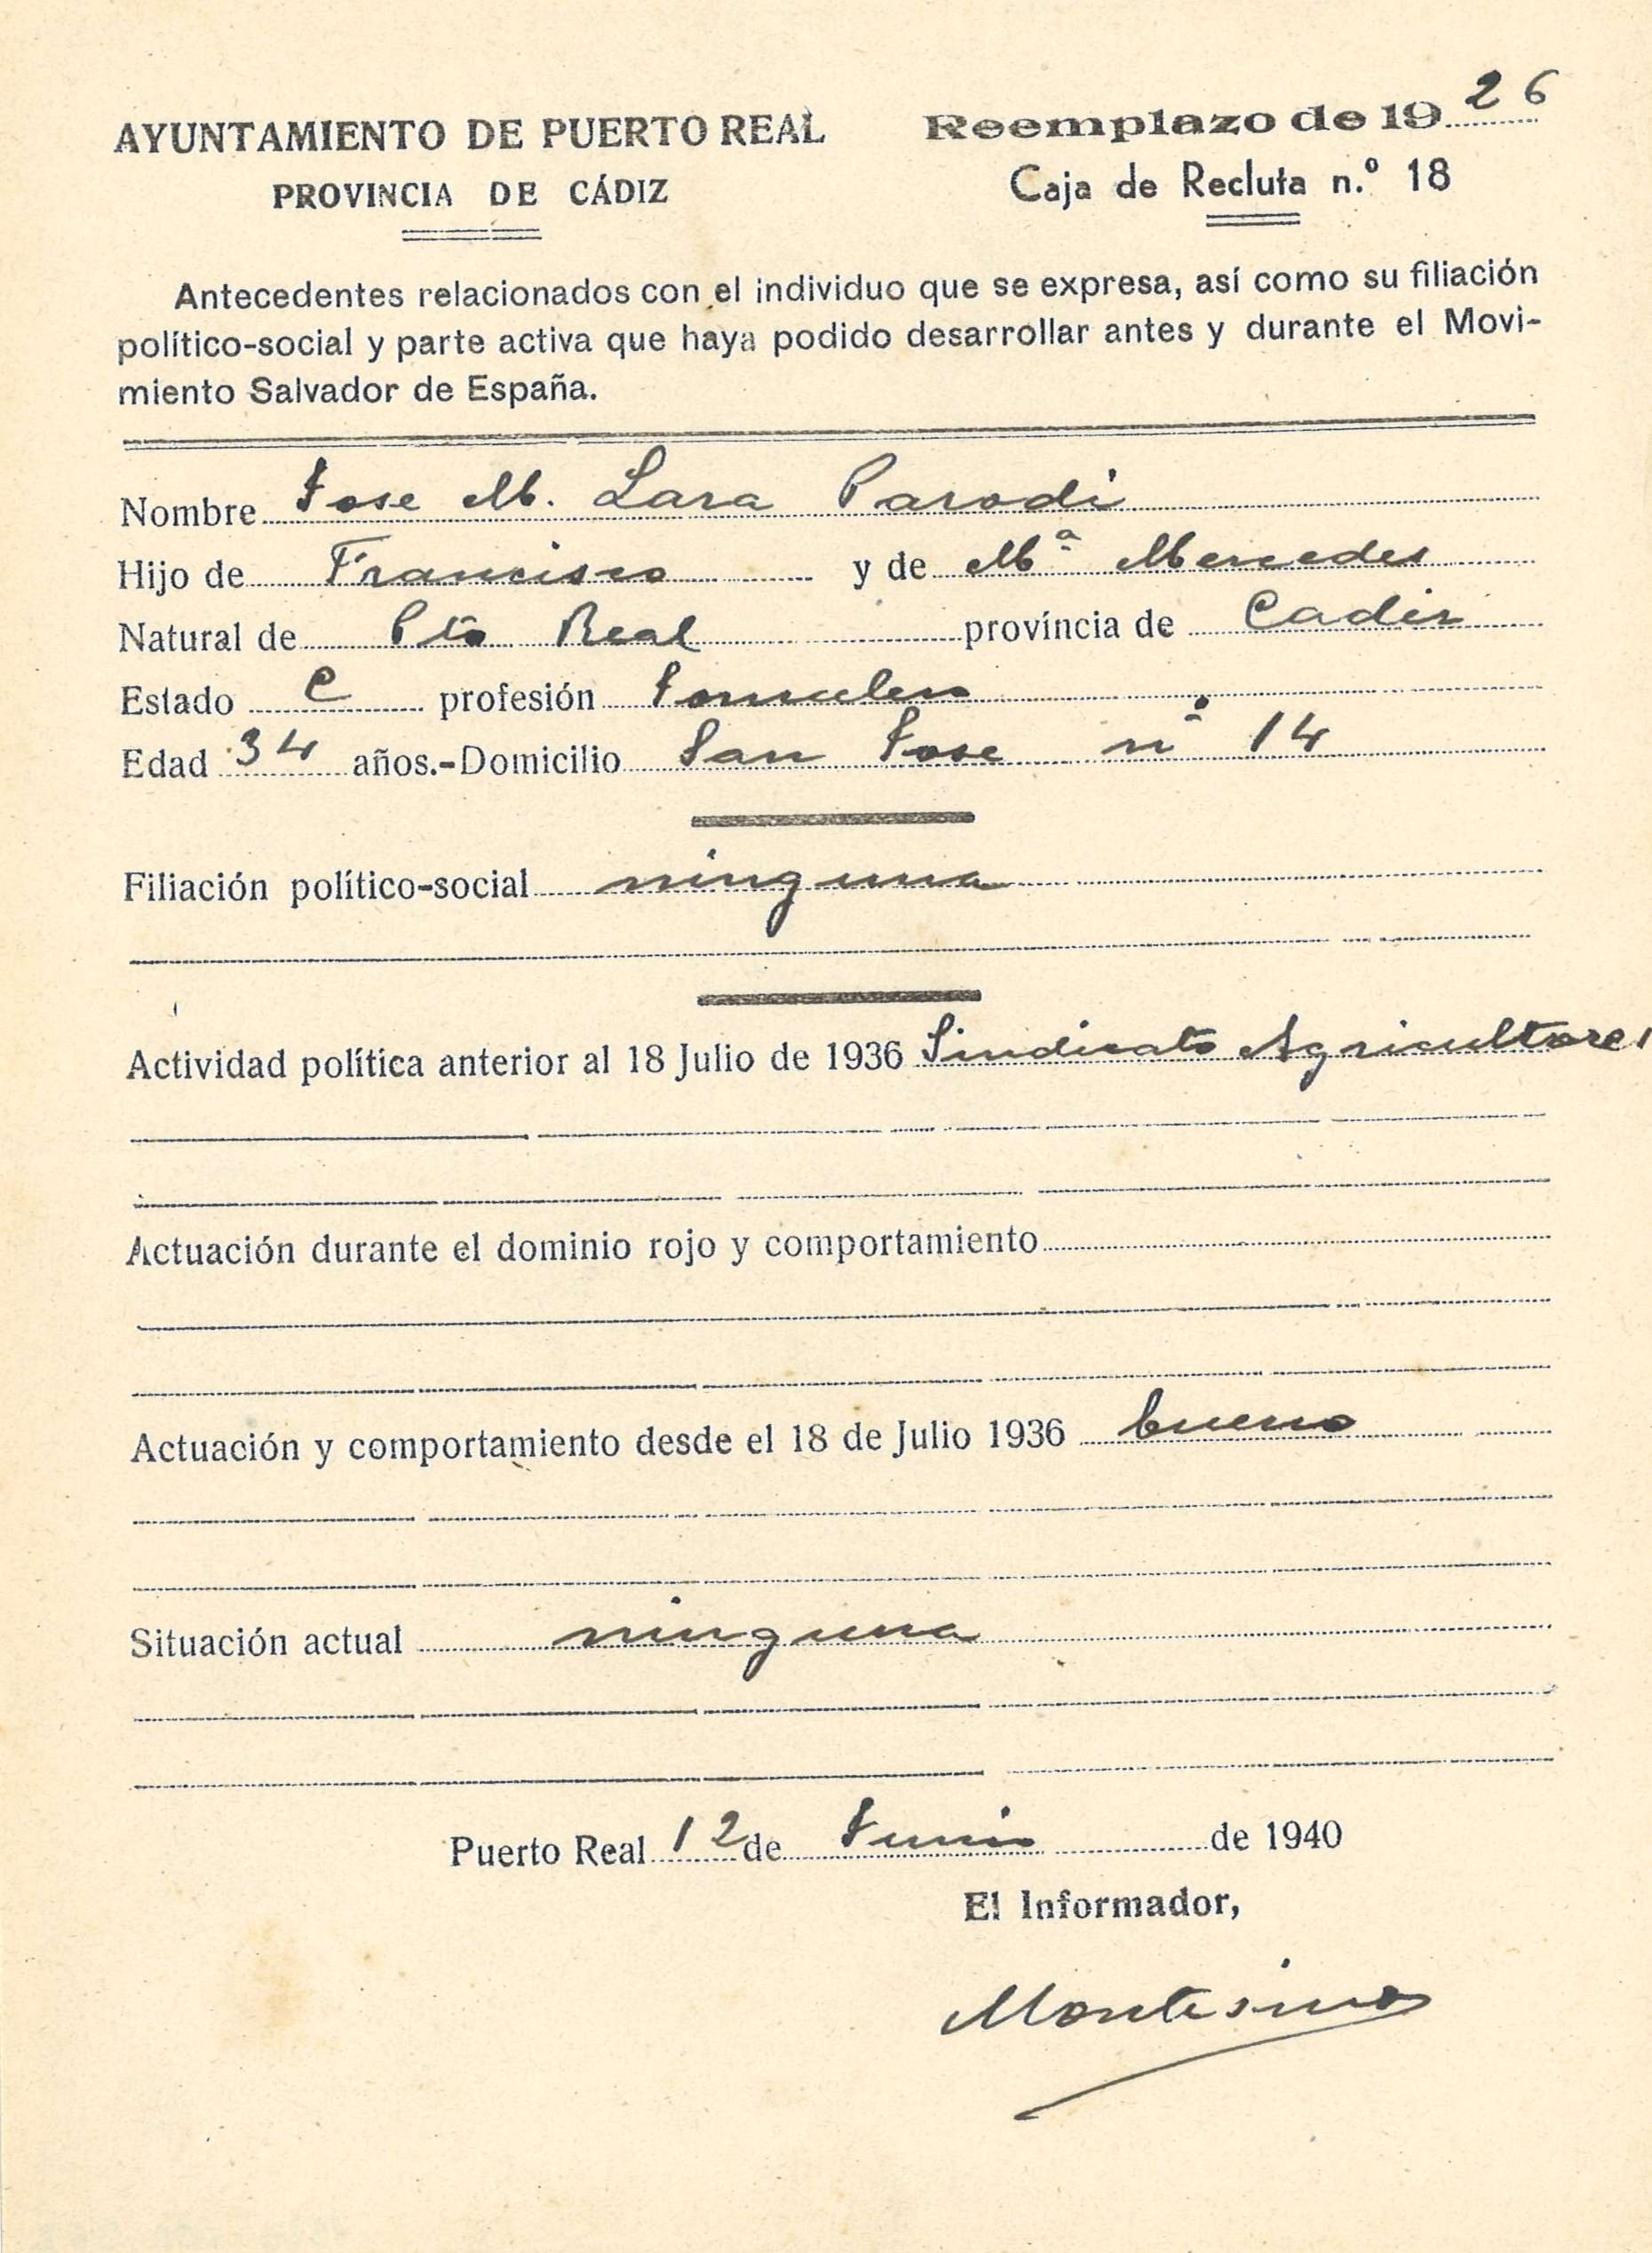 AYUNTAMIENTO DE PUERTO REAL
PROVINCIA DE CÁDIZ
Reemplazo de 19 26
Caja de Recluta n.º 18
Antecedentes relacionados con el individuo que se expresa, así como su filiación
político-social y parte activa que haya podido desarrollar antes y durante el Movi-
miento Salvador de España.
Nombre Jose M. Lara Parodi
Hijo de Francisco y de Mª Mercedes
Natural de Pto Real provincia de Cadiz
Estado C profesión Jornalero
Edad 34 años.-Domicilio San Jose nº 14
Filiación político-social ninguna
Actividad política anterior al 18 Julio de 1936 Sindicato Agricultores
Actuación durante el dominio rojo y comportamiento
Actuación y comportamiento desde el 18 de Julio 1936 bueno
Situación actual ninguna
Puerto Real 12 de Junio de 1940
El Informador,
Montesinos